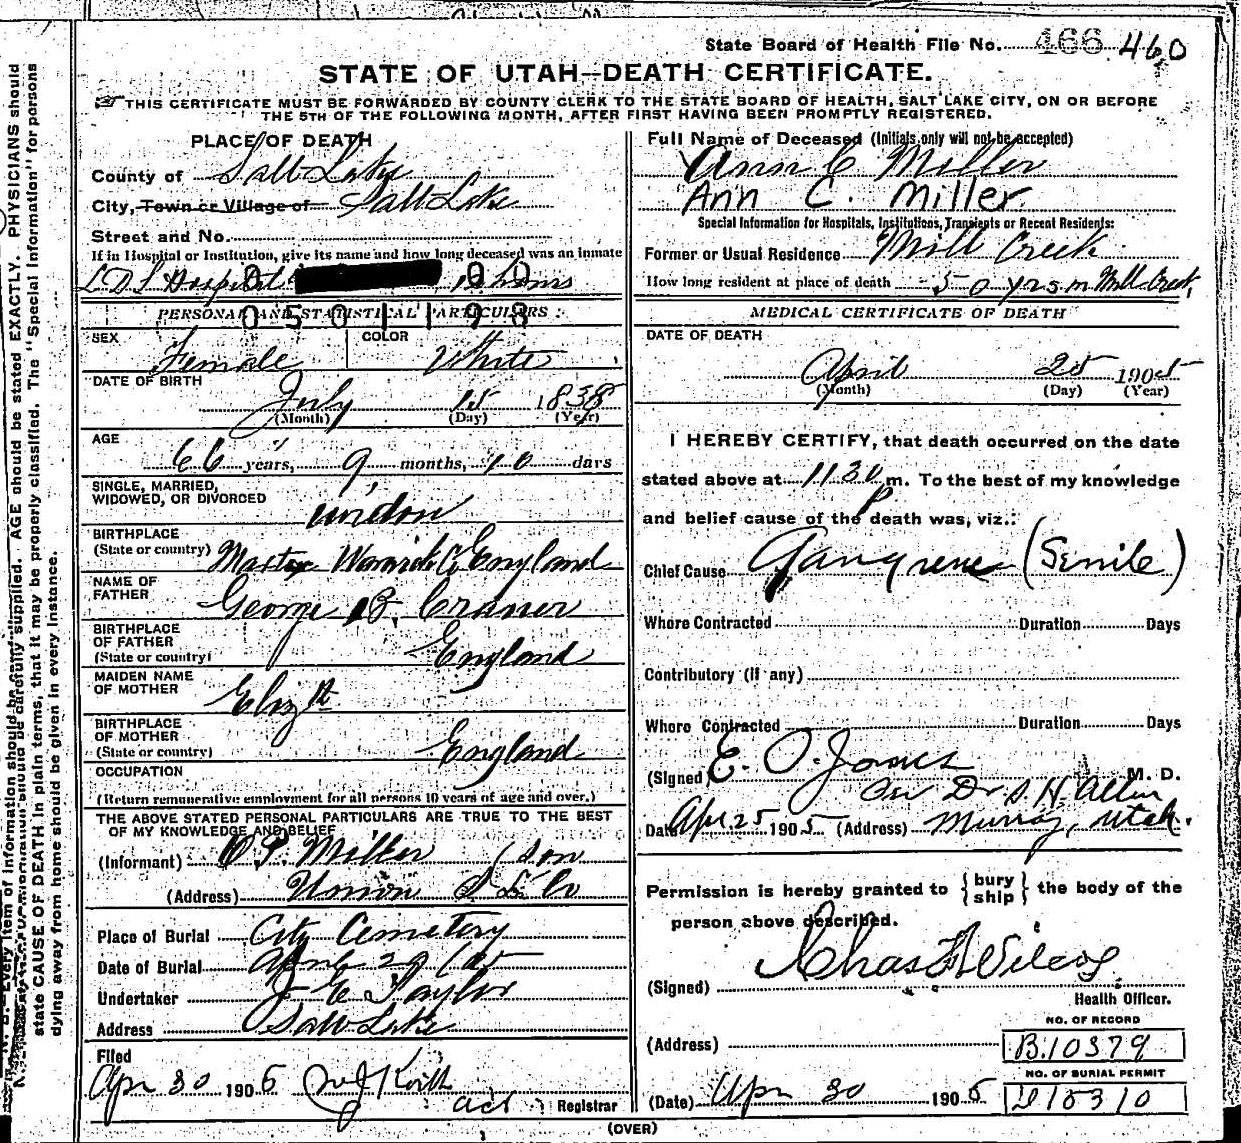 State Board of Health File No. 466 460
STATE OF UTAH—DEATH CERTIFICATE.
THIS CERTIFICATE MUST BE FORWARDED BY COUNTY CLERK TO THE STATE BOARD OF HEALTH, SALT LAKE CITY, ON OR BEFORE
THE 5TH OF THE FOLLOWING MONTH, AFTER FIRST HAVING BEEN PROMPTLY REGISTERED.
PLACE OF DEATH
County of Salt Lake
City, Town or Village of Salt Lake
Street and No.
If in Hospital or Institution, give its name and how long deceased was an inmate
L D S Hospital hours
PERSONAL AND STATISTICAL PARTICULARS
0501198
SEX Female COLOR White
DATE OF BIRTH
July 15 1838
(Month) (Day) (Year)
AGE
66 years, 9 months, 10 days
SINGLE, MARRIED,
WIDOWED, OR DIVORCED
widow
BIRTHPLACE
(State or country) Warwick Co England
NAME OF
FATHER George B. Craner
BIRTHPLACE
OF FATHER
(State or country) England
MAIDEN NAME
OF MOTHER Elizth
BIRTHPLACE
OF MOTHER
(State or country) England
OCCUPATION
(Return remunerative employment for all persons 10 years of age and over.)
THE ABOVE STATED PERSONAL PARTICULARS ARE TRUE TO THE BEST
OF MY KNOWLEDGE AND BELIEF
(Informant) O P. Miller (son
(Address) Union S L Co
Place of Burial City Cemetery
Date of Burial April 29/05
Undertaker J E Taylor
Address Salt Lake
Filed
Apr 30 1905
act Registrar
Full Name of Deceased (Initials only will not be accepted)
Ann C Miller
Ann C. Miller
Special Information for Hospitals, Institutions, Transients or Recent Residents:
Former or Usual Residence Mill Creek
How long resident at place of death 50 yrs in Mill Creek,
MEDICAL CERTIFICATE OF DEATH
DATE OF DEATH
April 25 1905
(Month) (Day) (Year)
I HEREBY CERTIFY, that death occurred on the date
stated above at 11 30 P m. To the best of my knowledge
and belief cause of the death was, viz.:
Chief Cause Gangrene (Senile)
Where Contracted Duration Days
Contributory (if any)
Where Contracted Duration Days
(Signed) E. O. Jones M. D.
Per Dr S. H. Allen
Date Apr 25 1905 (Address) Murray, Utah.
Permission is hereby granted to { bury
ship } the body of the
person above described.
(Signed) Chas F Wilcox
Health Officer.
(Address)
NO. OF RECORD
B.10379
NO. OF BURIAL PERMIT
D 15310
(Date) Apr 30 1905
(OVER)
N. B.—Every item of information should be carefully supplied. AGE should be stated EXACTLY. PHYSICIANS should
state CAUSE OF DEATH in plain terms, that it may be properly classified. The "Special Information" for persons
dying away from home should be given in every instance.